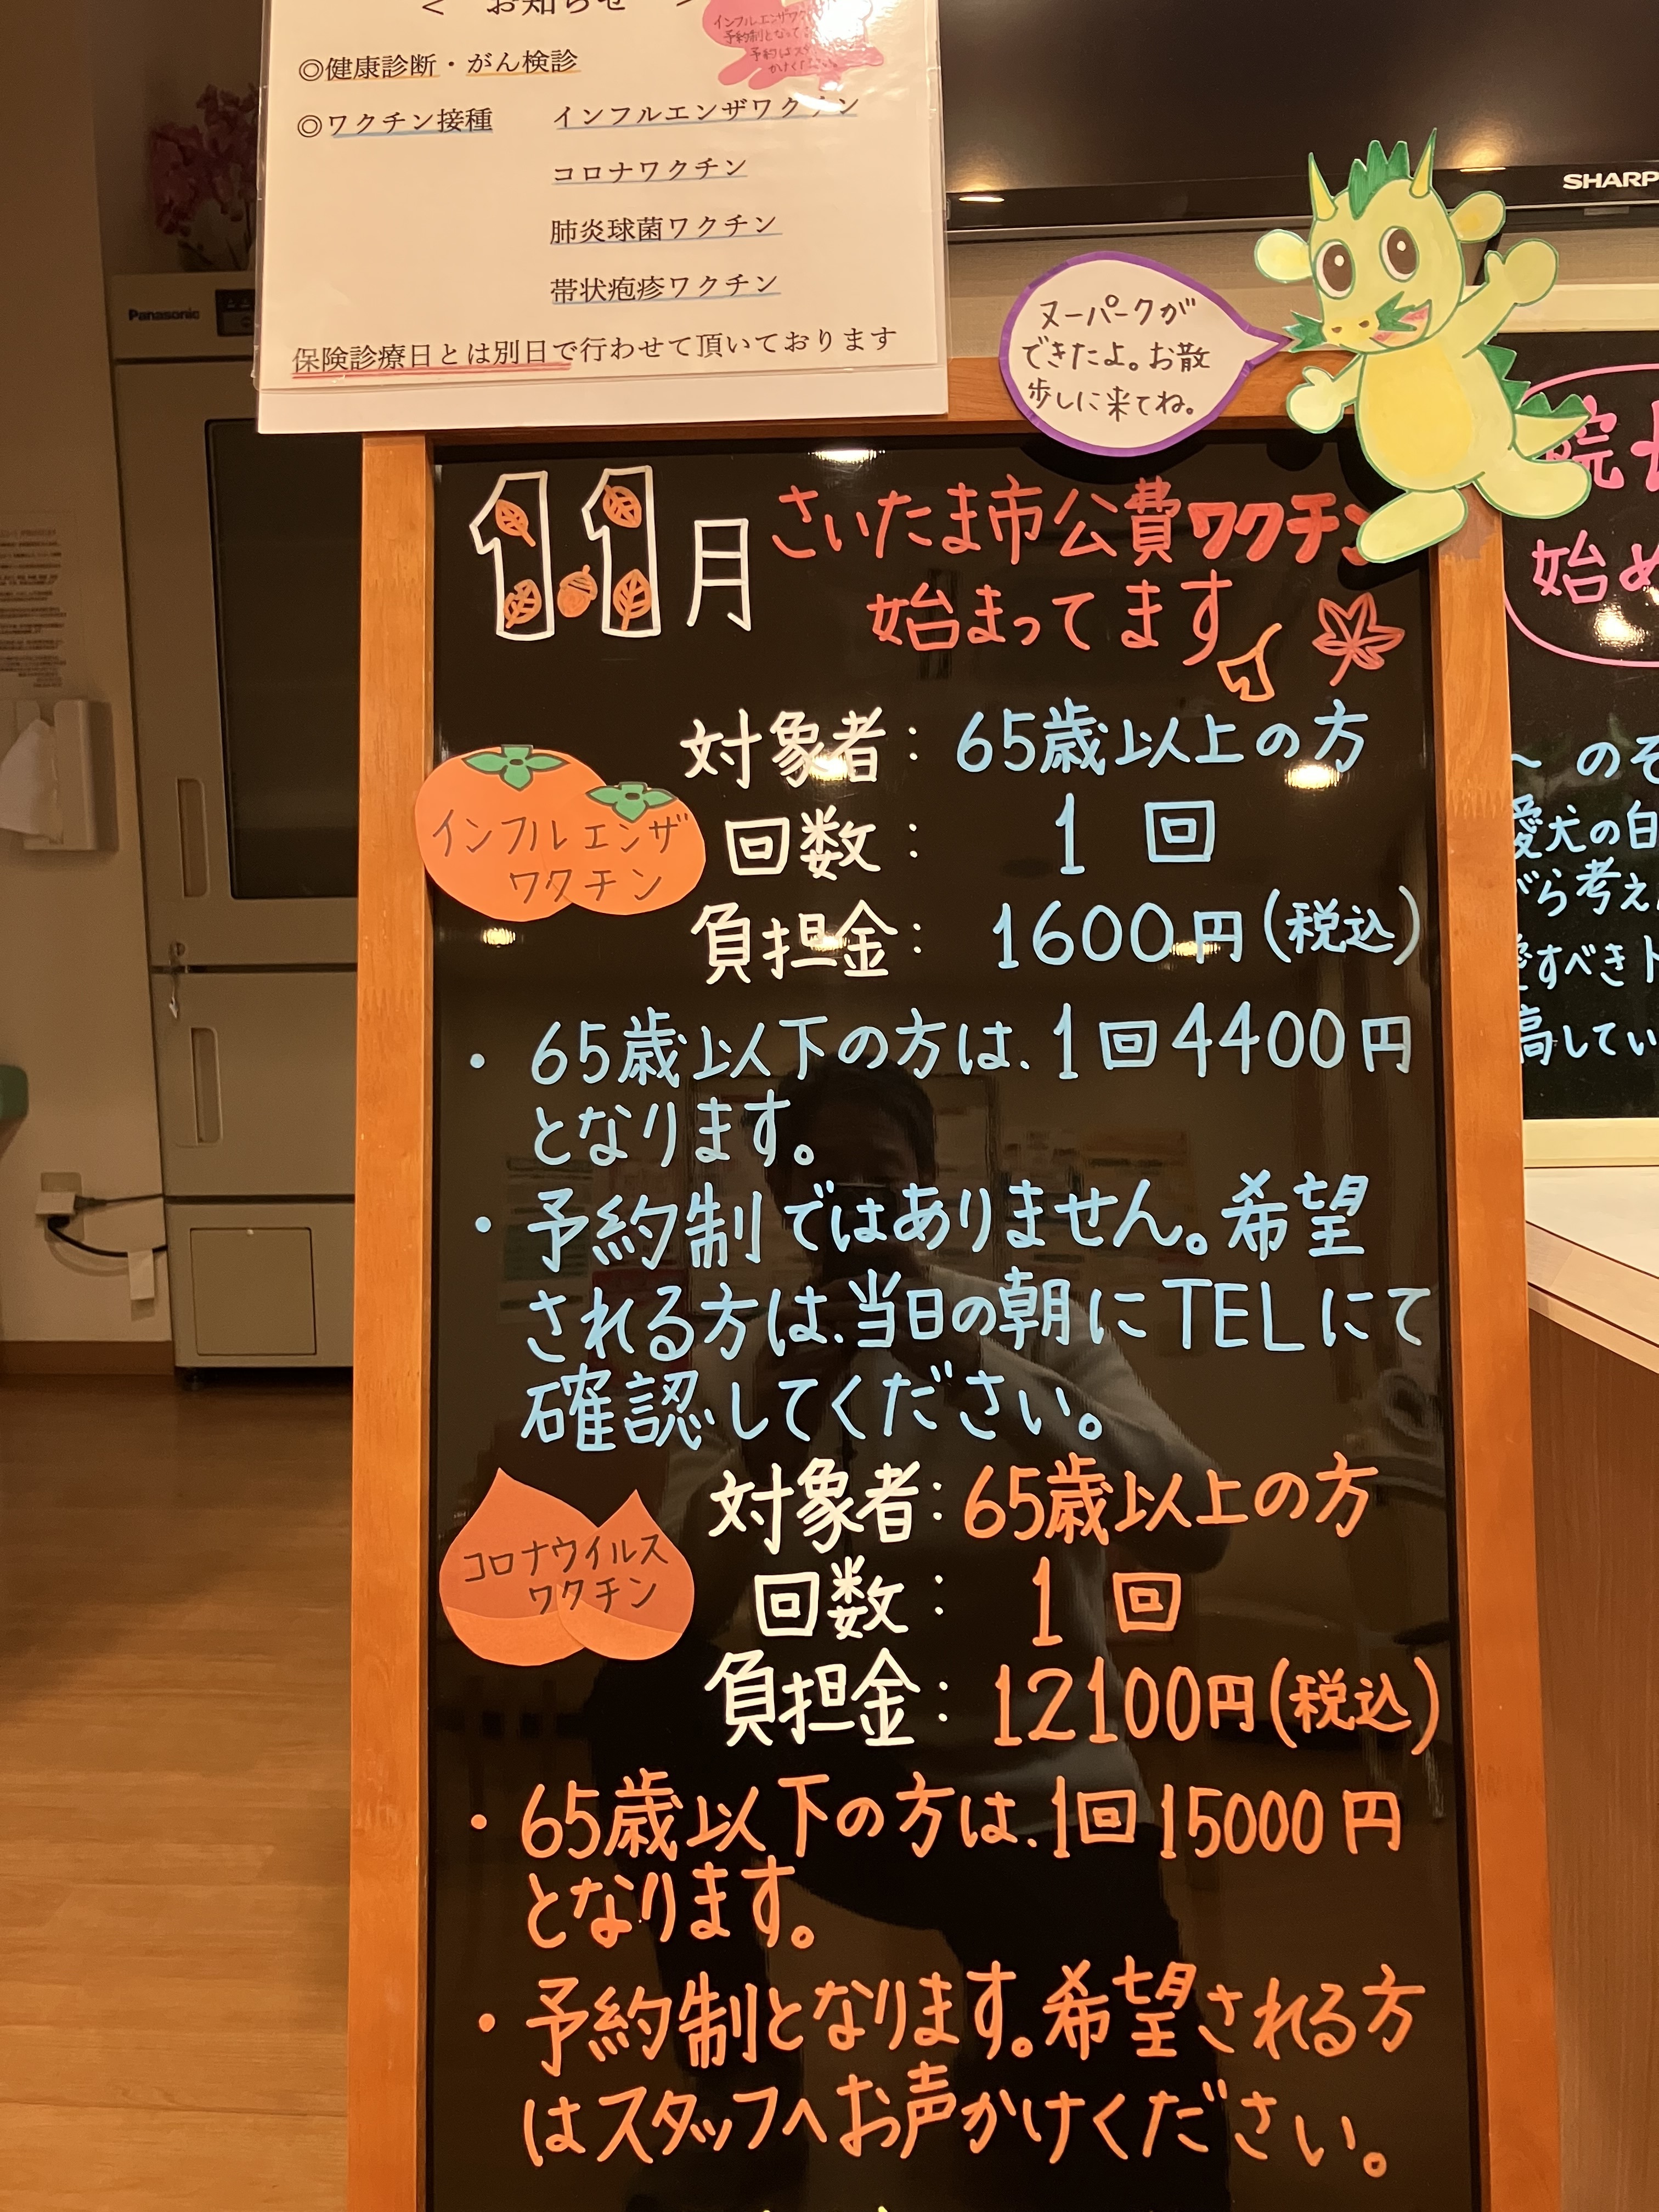 < お知らせ >
インフルエンザワ
予約制となって
予約はス
かけください。
◎健康診断・がん検診
◎ワクチン接種 インフルエンザワクチン
コロナワクチン
肺炎球菌ワクチン
帯状疱疹ワクチン
保険診療日とは別日で行わせて頂いております
Panasonic
SHARP
ヌーパークが
できたよ。お散
歩しに来てね。
11月 さいたま市公費ワクチン
始まってます
インフルエンザ
ワクチン
対象者: 65歳以上の方
回数: 1回
負担金: 1600円(税込)
・65歳以下の方は、1回4400円
となります。
・予約制ではありません。希望
される方は、当日の朝にTELにて
確認してください。
コロナウイルス
ワクチン
対象者: 65歳以上の方
回数: 1回
負担金: 12100円(税込)
・65歳以下の方は、1回15000円
となります。
・予約制となります。希望される方
はスタッフへお声かけください。
院
始め
〜 のそ
愛犬の白
がら考え
すべきト
高してい